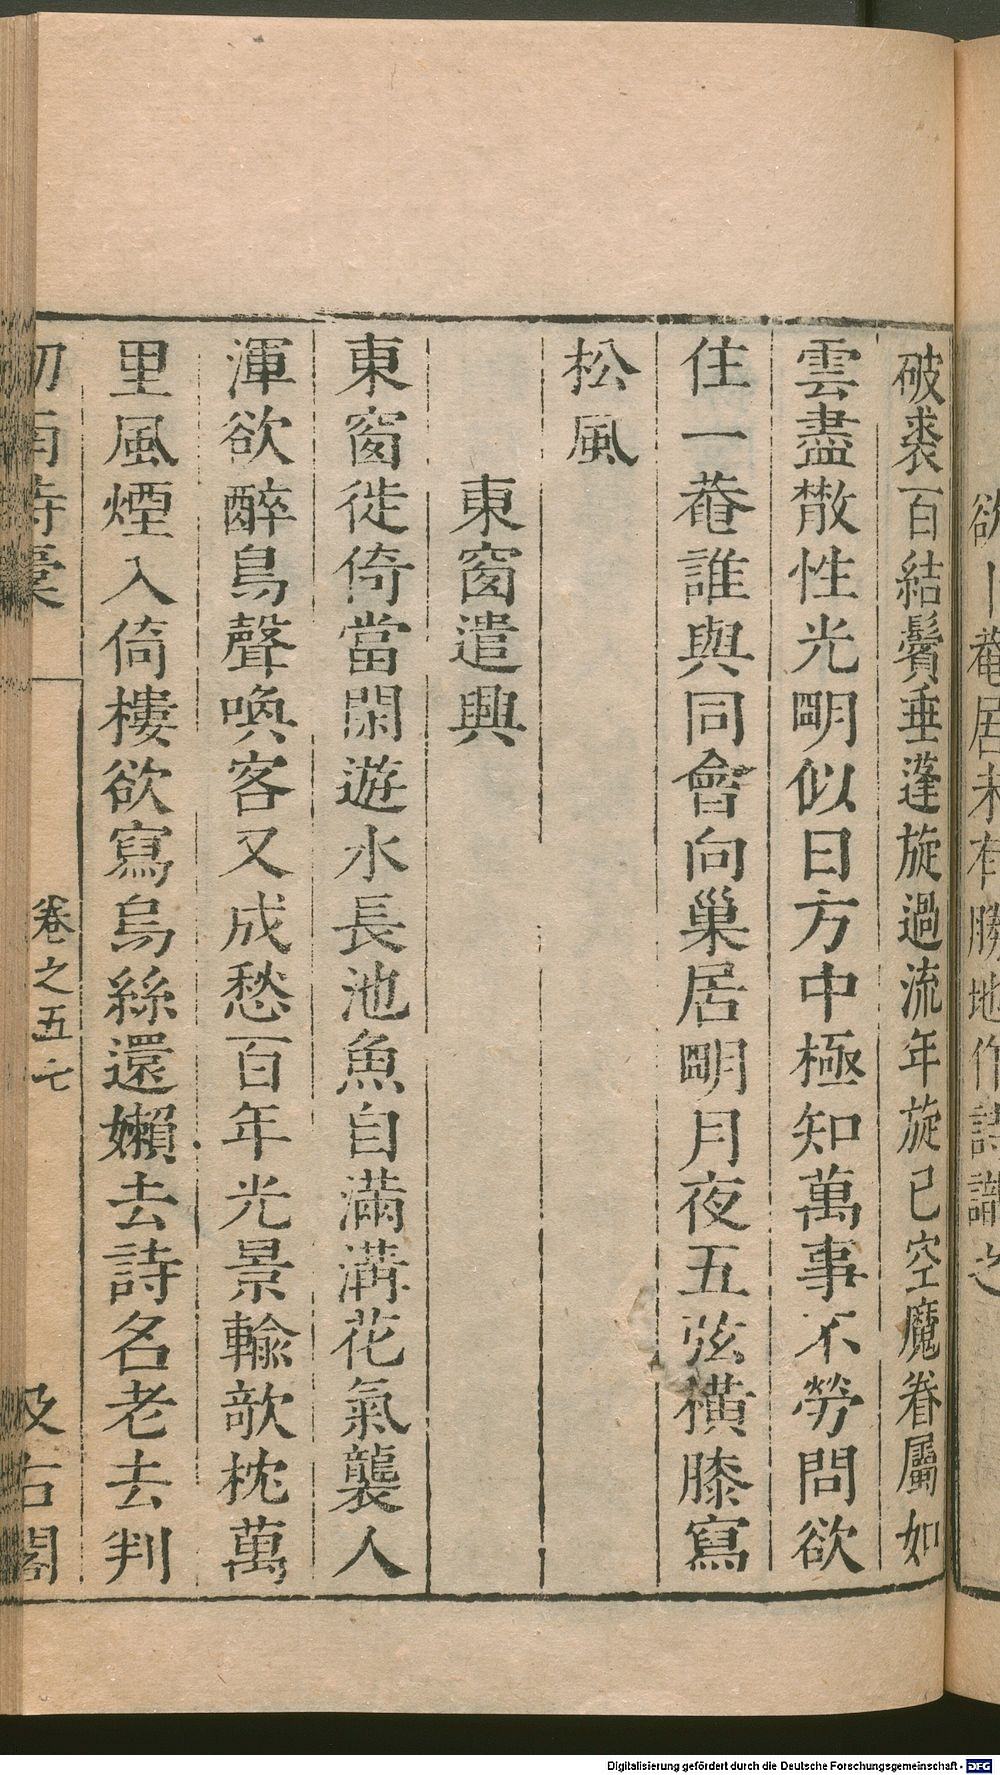 欲卜菴居未有勝地作詩識之
破裘百結鬢垂蓬旋過流年旋已空魔眷屬如
雲盡散性光朙似日方中極知萬事不勞問欲
住一菴誰與同會向巢居朙月夜五弦橫膝寫
松風
東窗遣興
東窗徙倚當閑遊水長池魚自滿溝花氣襲人
渾欲醉鳥聲喚客又成愁百年光景輸欹枕萬
里風煙入倚樓欲寫烏絲還嬾去詩名老去判
卷之五 七
汲古閣
Digitalisierung gefördert durch die Deutsche Forschungsgemeinschaft - DFG